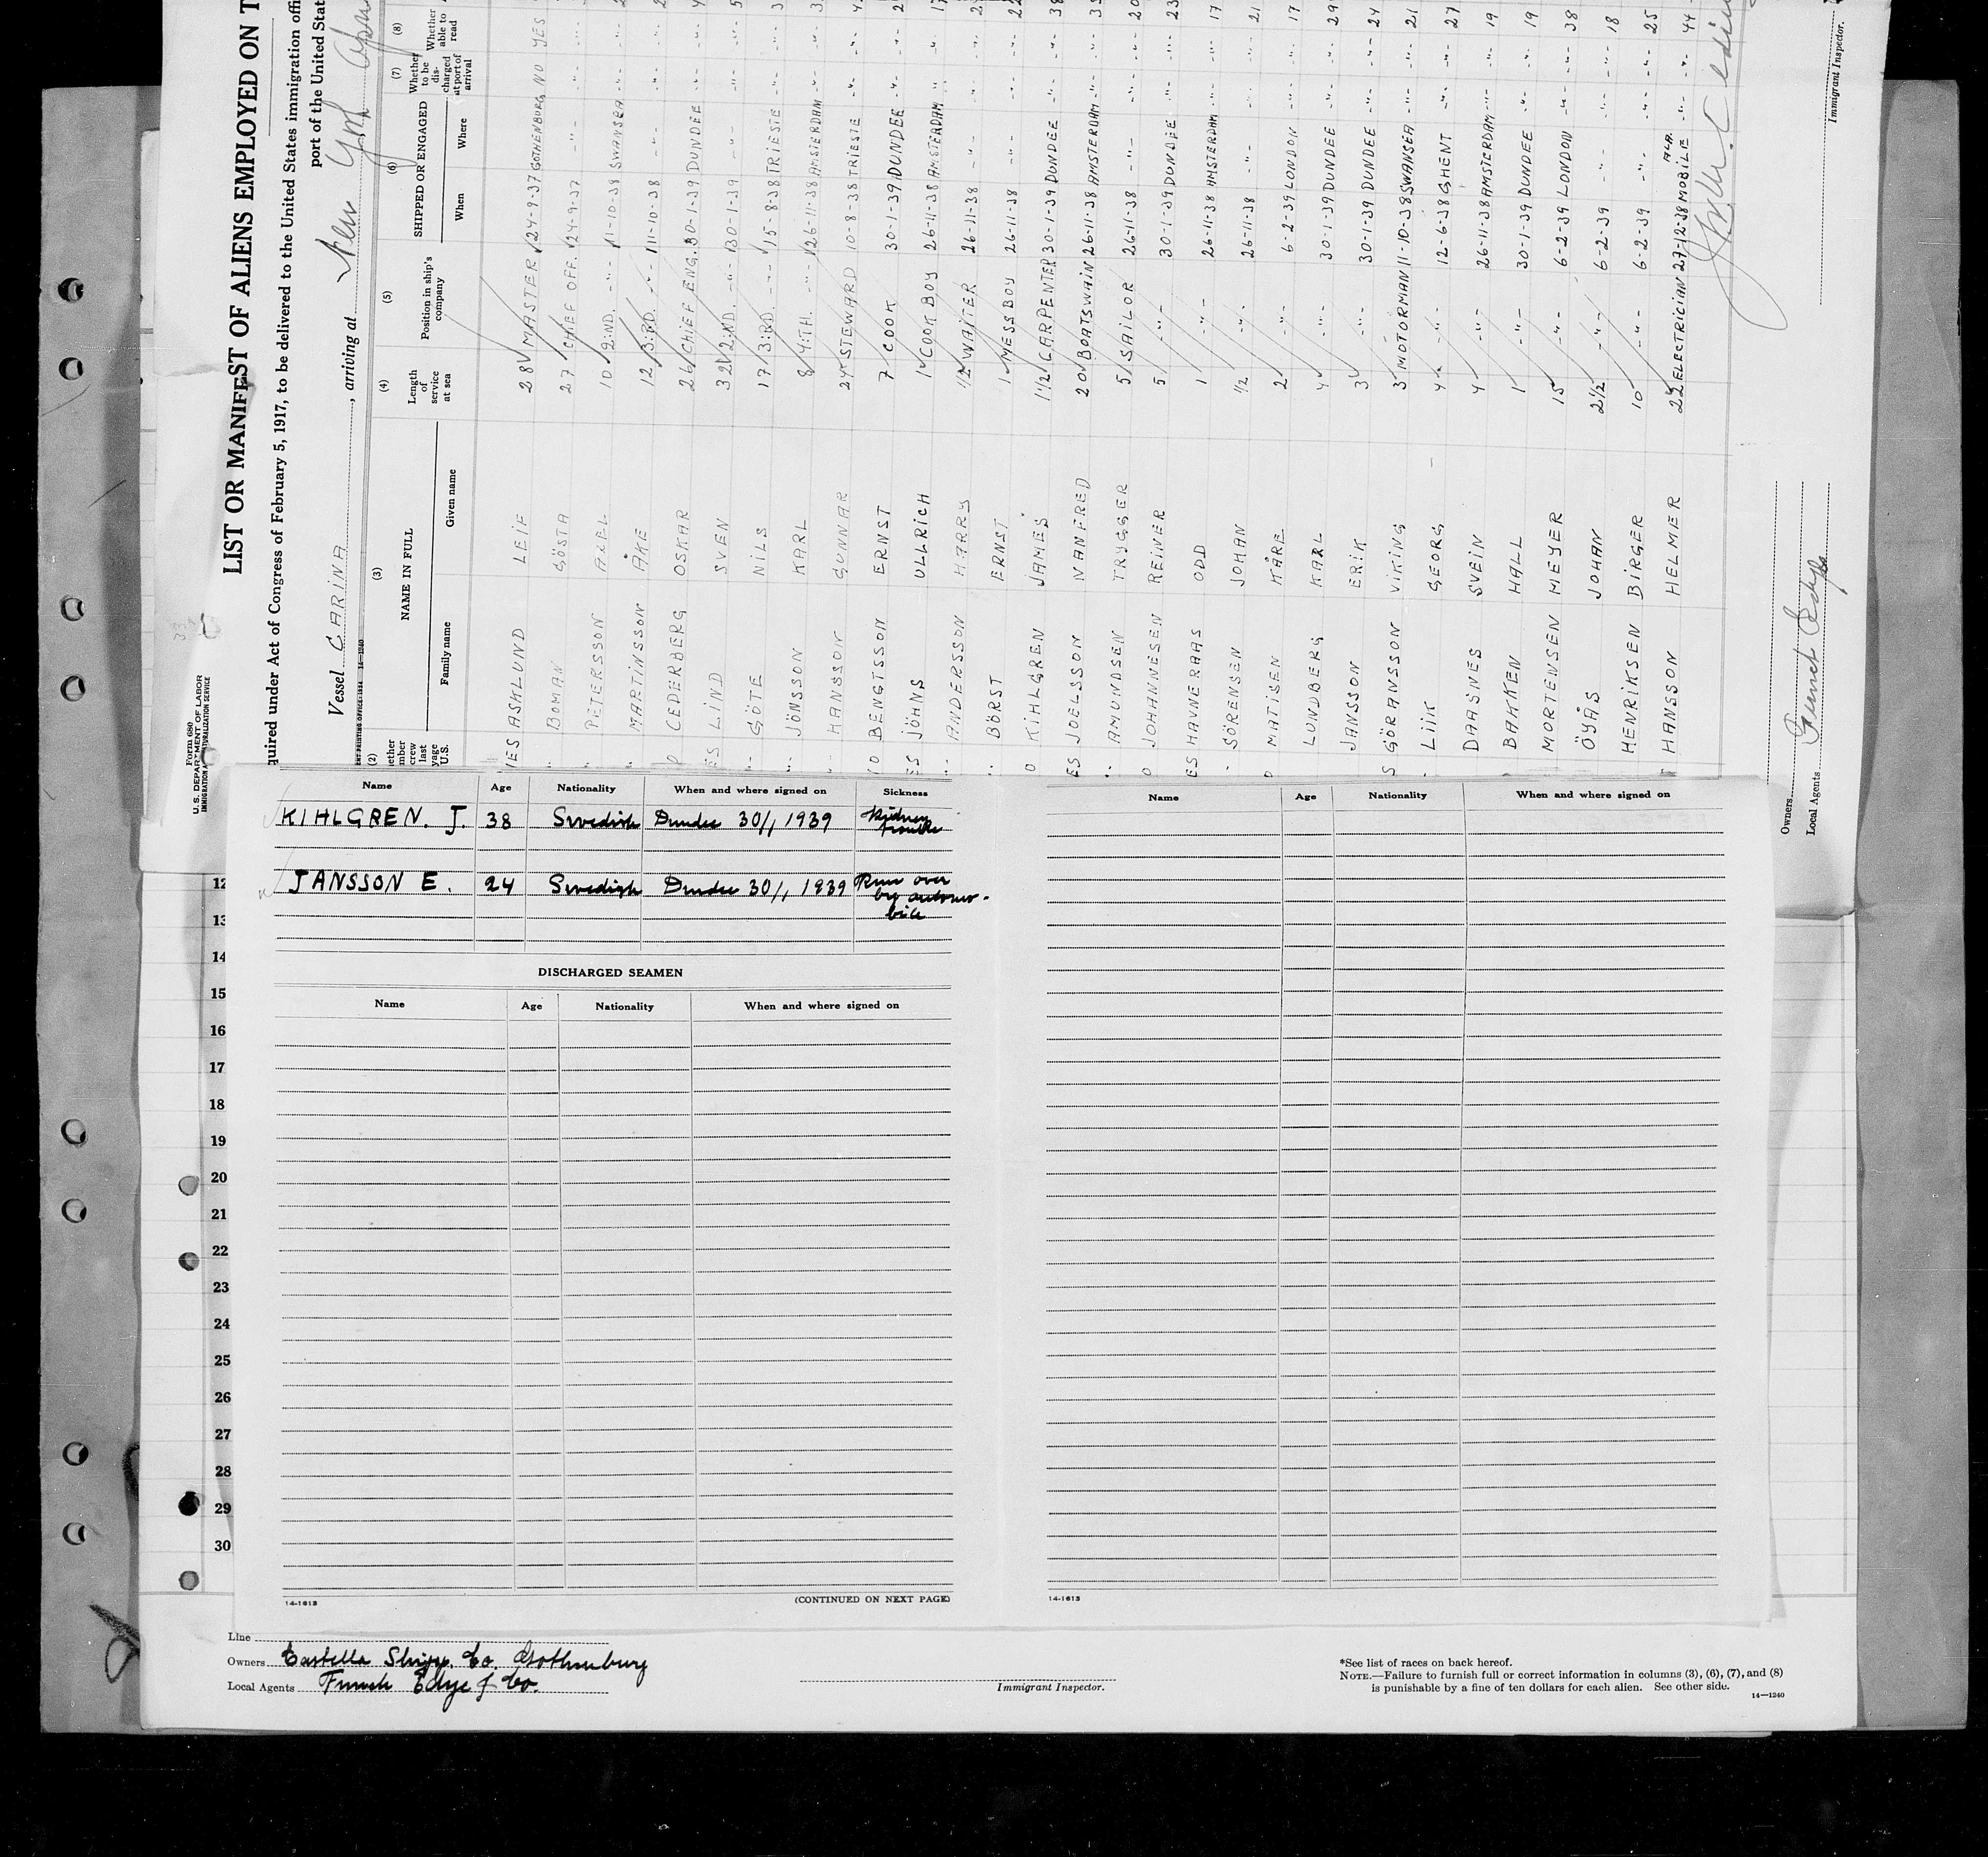 LIST OR MANIFEST OF ALIENS EMPLOYED ON T
quired under Act of Congress of February 5, 1917, to be delivered to the United States immigration offi
port of the United Stat
Form 680
U. S. DEPARTMENT OF LABOR
Vessel CARINA, arriving at New York
(2) (3) (4) (5) (6) (7) (8)
NAME IN FULL
Family name Given name
Length of service at sea
Position in ship's company
SHIPPED OR ENGAGED
When Where
Whether to be discharged at port of arrival
Whether able to read
ASKLUND LEIF 28 MASTER 24-9-37 GOTHENBURG NO YES
BOMAN GÖSTA 27 CHIEF OFF. 24-9-37 -"-
PETERSSON AXEL 10 2:ND. -"- 11-10-38 SWANSEA
MARTINSSON ÅKE 12 3:RD. -"- 11-10-38 -"-
CEDERBERG OSKAR 26 CHIEF ENG. 30-1-39 DUNDEE
LIND SVEN 32 2:ND. -"- 30-1-39 -"-
GÖTE NILS 17 3:RD. -"- 15-8-38 TRIESTE
JÖNSSON KARL 8 4:TH. -"- 26-11-38 AMSTERDAM
HANSSON GUNNAR 24 STEWARD 10-8-38 TRIESTE
BENGTSSON ERNST 7 COOK 30-1-39 DUNDEE
JÖHNS ULLRICH 1 COOK BOY 26-11-38 AMSTERDAM
ANDERSSON HARRY 1/2 WAITER 26-11-38 -"-
BÖRST ERNST 1 MESSBOY 26-11-38 -"- 22
KIHLGREN JAMES 1 1/2 CARPENTER 30-1-39 DUNDEE 38
JOELSSON MANFRED 20 BOATSWAIN 26-11-38 AMSTERDAM
AMUNDSEN TRYGGER 5 SAILOR 26-11-38 -"- 20
JOHANNESEN REINER 5 -"- 30-1-39 DUNDEE 23
HAVNERAAS ODD 1 -"- 26-11-38 AMSTERDAM 17
SÖRENSEN JOHAN 1/2 -"- 26-11-38 -"- 21
MATISEN KÅRE 2 -"- 6-2-39 LONDON 17
LUNDBERG KARL 4 -"- 30-1-39 DUNDEE 29
JANSSON ERIK 3 -"- 30-1-39 DUNDEE 24
GÖRANSSON VIKING 3 MOTORMAN 11-10-38 SWANSEA 21
LIIK GEORG 4 -"- 12-6-38 GHENT 27
DAASNES SVEIN 4 -"- 26-11-38 AMSTERDAM 19
BAKKEN HALL 1 -"- 30-1-39 DUNDEE 19
MORTENSEN MEYER 15 -"- 6-2-39 LONDON 38
ÖYÅS JOHAN 2 1/2 -"- 6-2-39 -"- 18
HENRIKSEN BIRGER 10 -"- 6-2-39 -"- 25
HANSSON HELMER 22 ELECTRICIAN 27-12-38 MOBILE ALA. 44
Owners
Local Agents
Immigrant Inspector.
Name Age Nationality When and where signed on Sickness
KIHLGREN. J. 38 Swedish Dundee 30/1 1939 Kidney trouble
JANSSON E. 24 Swedish Dundee 30/1 1939 Run over
by automo-
bile
DISCHARGED SEAMEN
Name Age Nationality When and where signed on
(CONTINUED ON NEXT PAGE)
14-1613
Name Age Nationality When and where signed on
14-1613
12
13
14
15
16
17
18
19
20
21
22
23
24
25
26
27
28
29
30
Line
Owners Shipp. Co. Gothenburg
Local Agents Funch Edye & Co.
Immigrant Inspector.
*See list of races on back hereof.
NOTE.—Failure to furnish full or correct information in columns (3), (6), (7), and (8)
is punishable by a fine of ten dollars for each alien. See other side.
14—1240